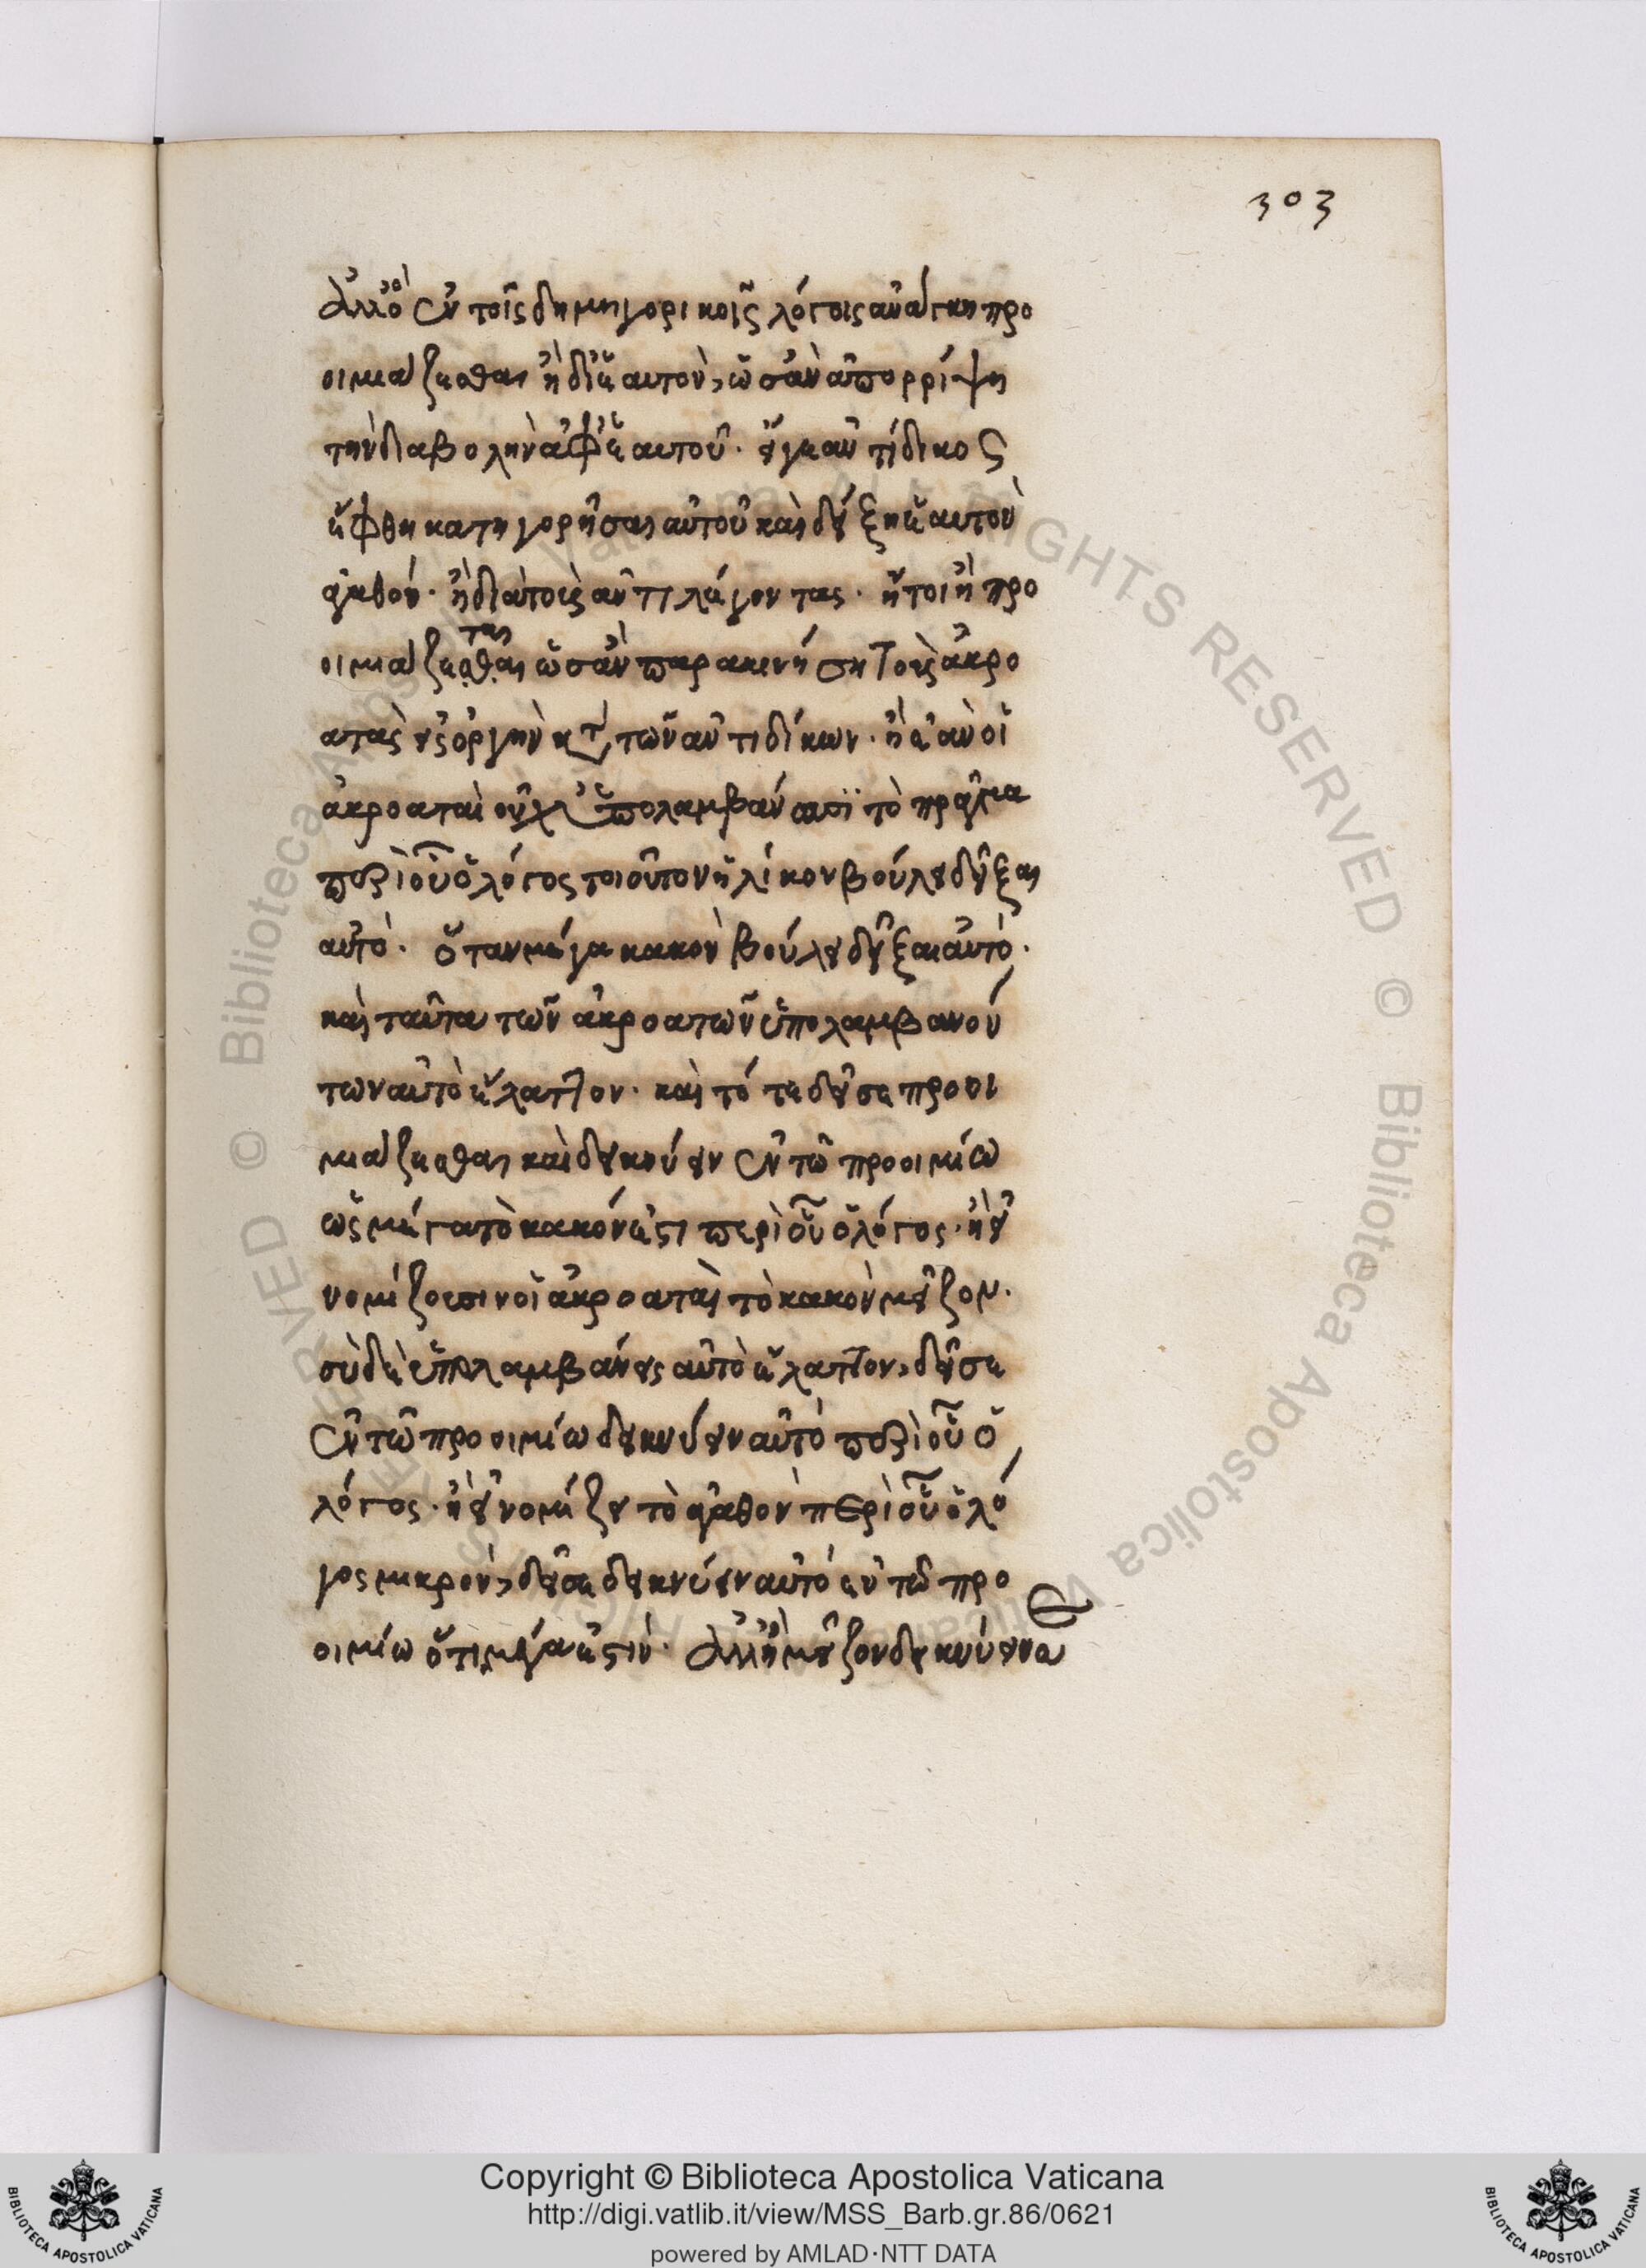 303
ἀλλ' ὁ ἐν τοῖς δημηγορικοῖς λόγοις ἀνάγκη προ
οιμιάζεσθαι ἢ δι' ἑαυτὸν, ὡς ἂν ἀπορρίψη
τὴν διαβολὴν ἀφ' ἑαυτοῦ. ἣν ὁ ἀντίδικος
ἔφθη κατηγορῆσαι αὐτοῦ καὶ δείξη ἑαυτὸν
ἀγαθόν. ἢ διὰ τοὺς ἀντιλέγοντας. ἤτοι ἢ προ
οιμιάζεται ὡς ἂν παρακινήση τοὺς ἀκρο
ατὰς εἰς ὀργὴν κατὰ τῶν ἀντιδίκων. ἢ ἐὰν οἱ
ἀκροαταὶ οὐχ ὑπολαμβάνωσι τὸ πρᾶγμα
περὶ οὗ ὁ λόγος τοιοῦτον ἡλίκον βούλει δεῖξαι
αὐτό. ὅταν μέγα κακὸν βούλει δεῖξαι αὐτὸ.
καὶ ταῦτα τῶν ἀκροατῶν ὑπολαμβανόν
των αὐτὸ ἔλαττον. καὶ τότε δεῖ σε προοι
μιάζεσθαι καὶ δεικνύειν ἐν τῶ προοιμίω
ὡς μέγα τὸ κακόν ἐστι περὶ οὗ ὁ λόγος. ἢ εἰ
νομίζουσιν οἱ ἀκροαταὶ τὸ κακὸν μεῖζον.
σὺ δὲ ὑπολαμβάνεις αὐτὸ ἔλαττον, δεῖ σε
ἐν τῶ προοιμίω δεικνύειν αὐτὸ περὶ οὗ ὁ
λόγος. ἢ εἰ νομίζει τὸ ἀγαθὸν περὶ οὗ ὁ λό
γος μικρὸν, δεῖ σε δεικνύειν αὐτὸ ἐν τῶ προ
οιμίω ὅτι μέγα ἐστίν. ἀλλ' ἢ μεῖζον δεικνύειν α
Copyright © Biblioteca Apostolica Vaticana
http://digi.vatlib.it/view/MSS_Barb.gr.86/0621
powered by AMLAD·NTT DATA